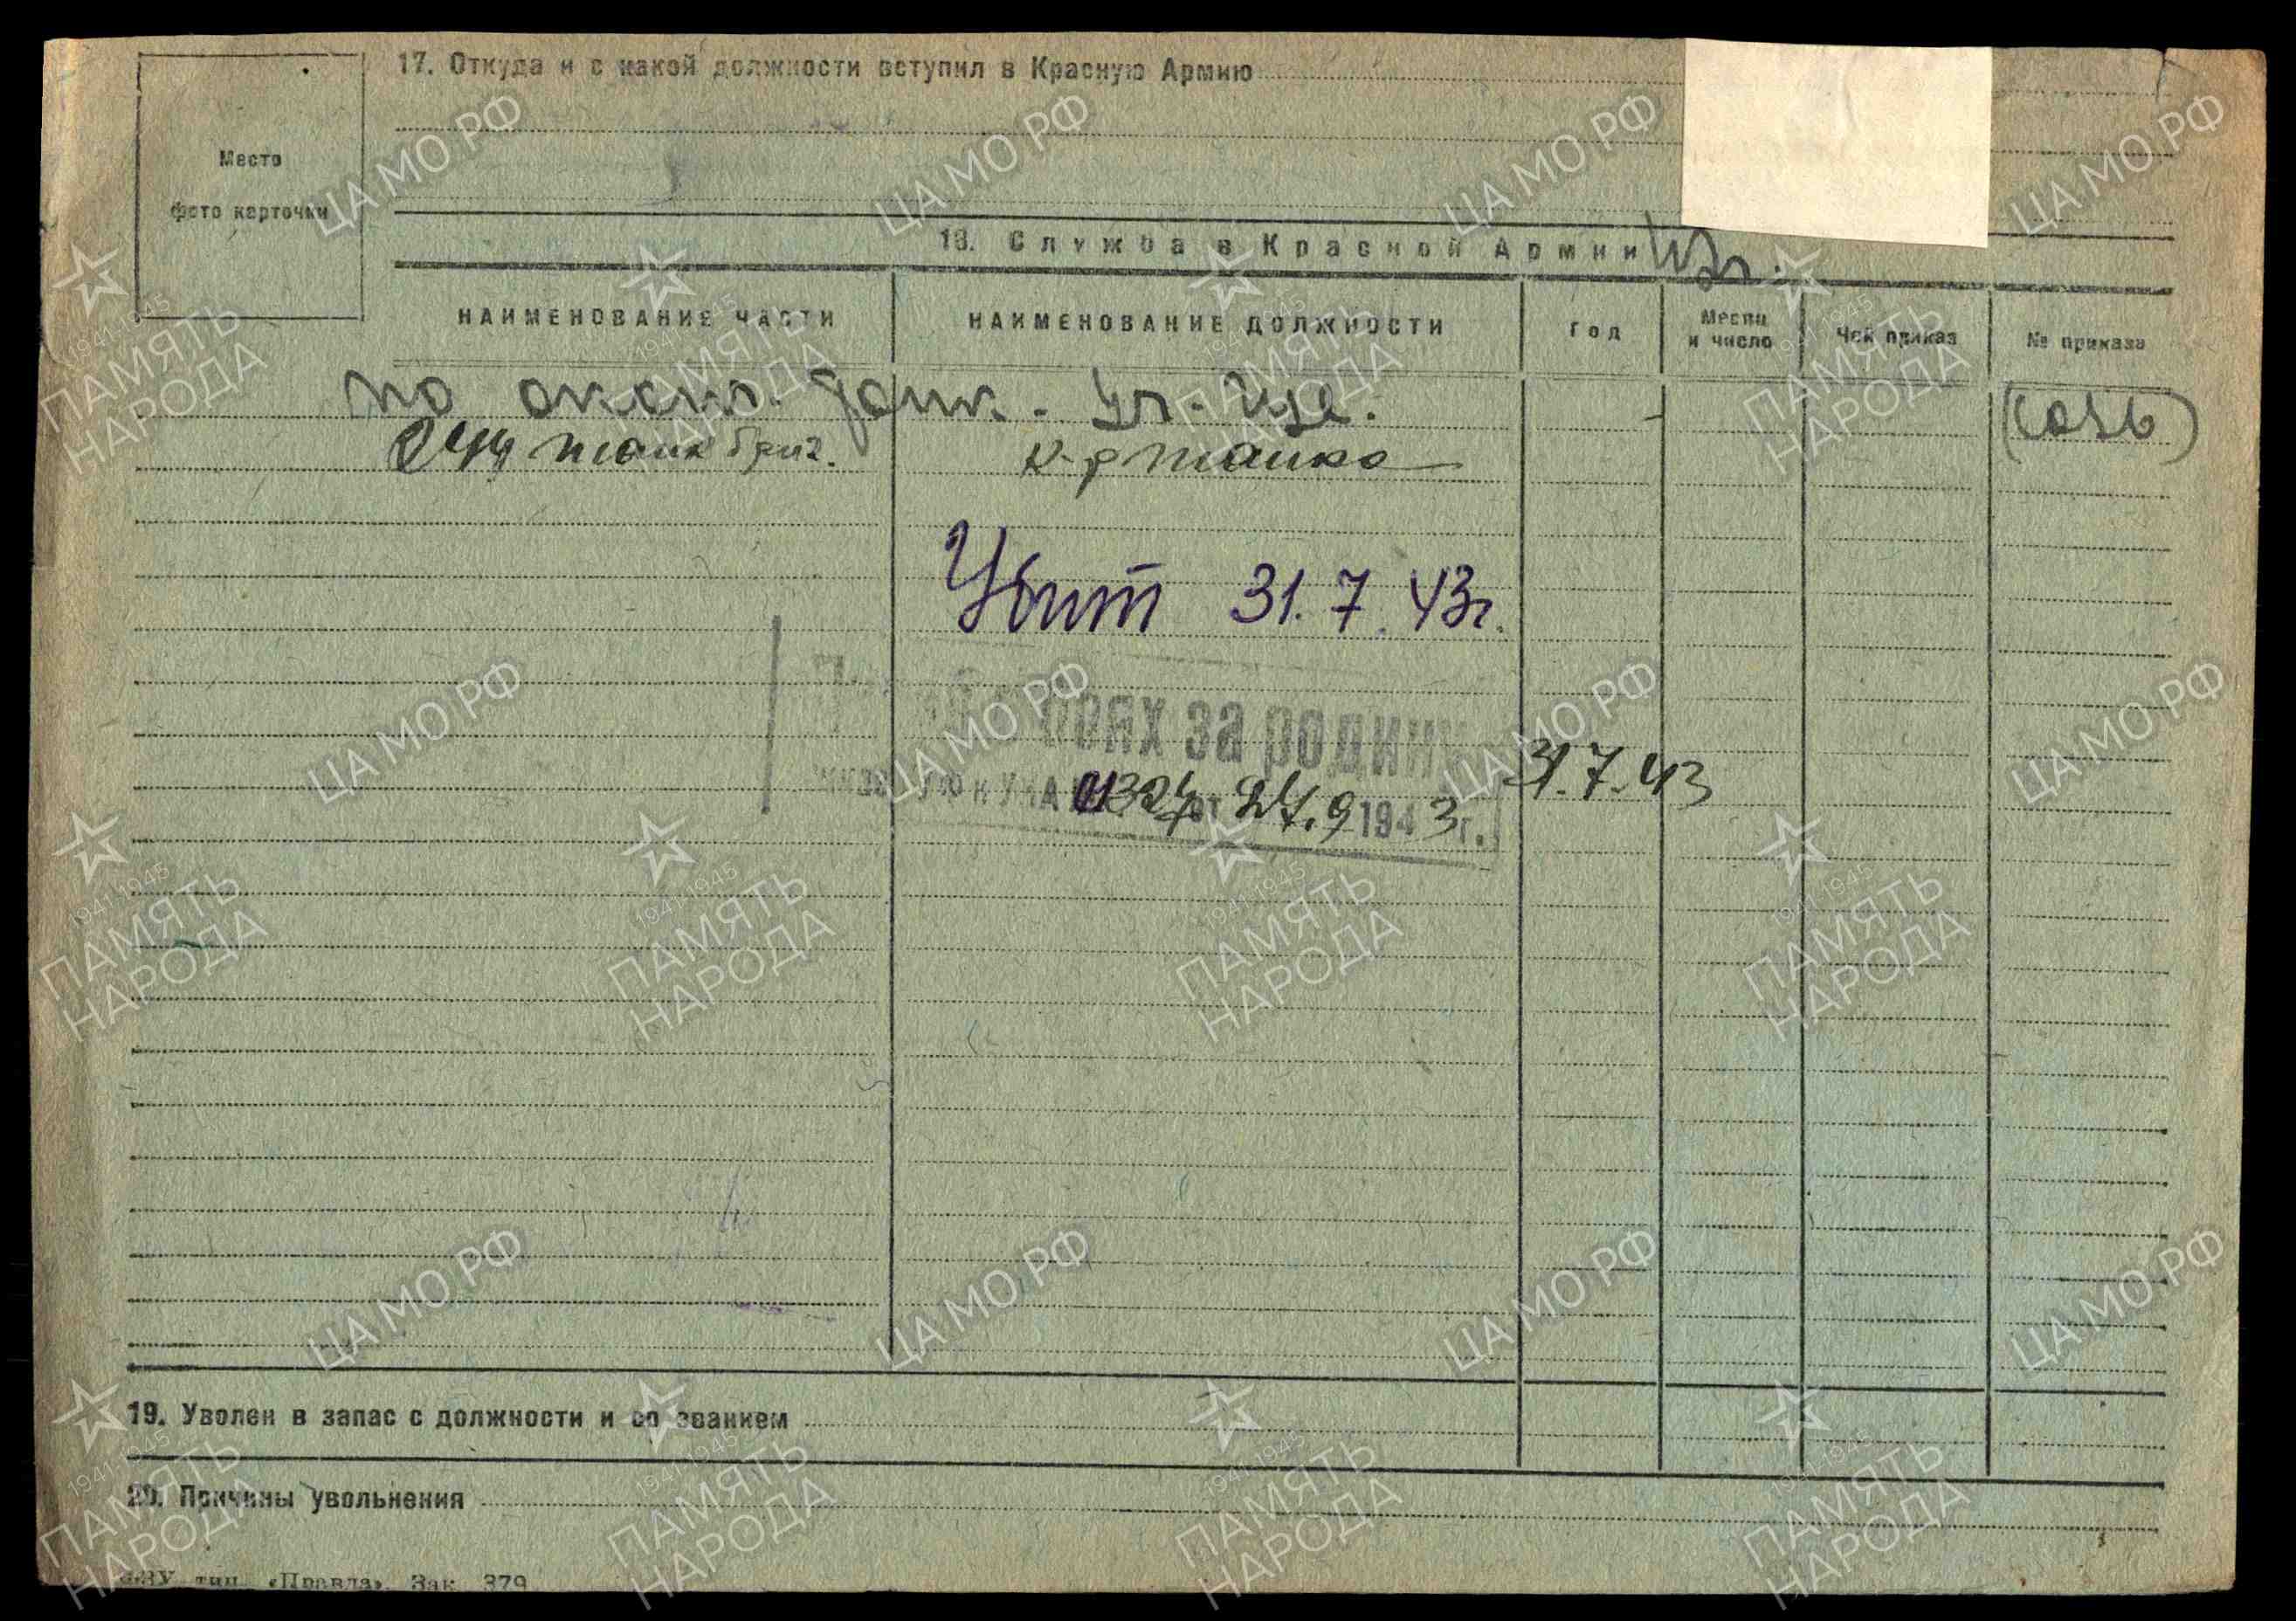 17. Откуда и с какой должности вступил в Красную Армию
Место
фото карточки
18. Служба в Красной Армии
НАИМЕНОВАНИЕ ЧАСТИ
НАИМЕНОВАНИЕ ДОЛЖНОСТИ
Год
Месяц
и число
Чей приказ
№ приказа
по оконч.
244 танк бриг.
к-р танка
Убит 31.7.43г.
боях за родину
31.7.43
от 24.9 1943г.
19. Уволен в запас с должности и со званием
20. Причины увольнения
тип. «Правда». Зак. 379
ЦА МО РФ
1941-1945
ПАМЯТЬ
НАРОДА